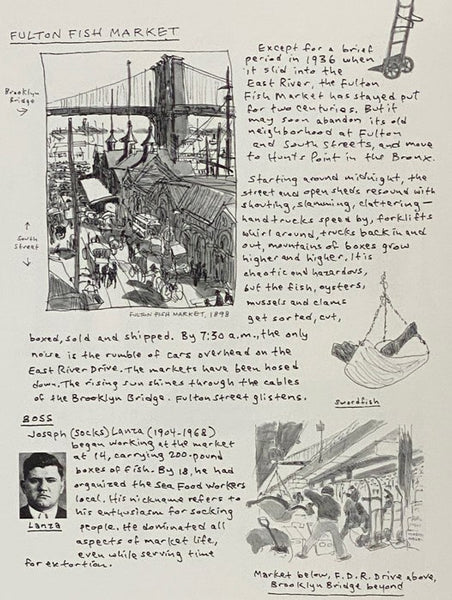 FULTON FISH MARKET
Brooklyn
Bridge
South
Street
FULTON FISH MARKET, 1898
Except for a brief
period in 1936 when
it slid into the
East River, the Fulton
Fish Market has stayed put
for two centuries. But it
may soon abandon its old
neighborhood at Fulton
and South Streets, and move
to Hunts Point in the Bronx.
Starting around midnight, the
street and open sheds resound with
shouting, slamming, clattering—
hand trucks speed by, forklifts
whirl around, trucks back in and
out, mountains of boxes grow
higher and higher. It is
chaotic and hazardous,
but the fish, oysters,
mussels and clams
get sorted, cut,
boxed, sold and shipped. By 7:30 a.m., the only
noise is the rumble of cars overhead on the
East River Drive. The markets have been hosed
down. The rising sun shines through the cables
of the Brooklyn Bridge. Fulton Street glistens.
Swordfish
BOSS
Joseph (Socks) Lanza (1904-1968)
began working at the market
at 14, carrying 200-pound
boxes of fish. By 18, he had
organized the Sea Food Workers
local. His nickname refers to
his enthusiasm for socking
people. He dominated all
aspects of market life,
even while serving time
for extortion.
Lanza
Market below, F.D.R. Drive above,
Brooklyn Bridge beyond